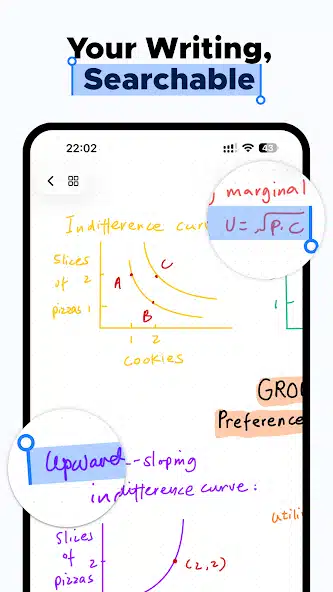 Your Writing,
Searchable
22:02
43
, marginal
U = √P.C
Indifference cur
Slices
of
pizzas
2
1
A
C
B
1
2
Cookies
1
GROU
Preference
Upward--sloping
indifference curve:
utili
Slices
of
pizzas
2
(2,2)